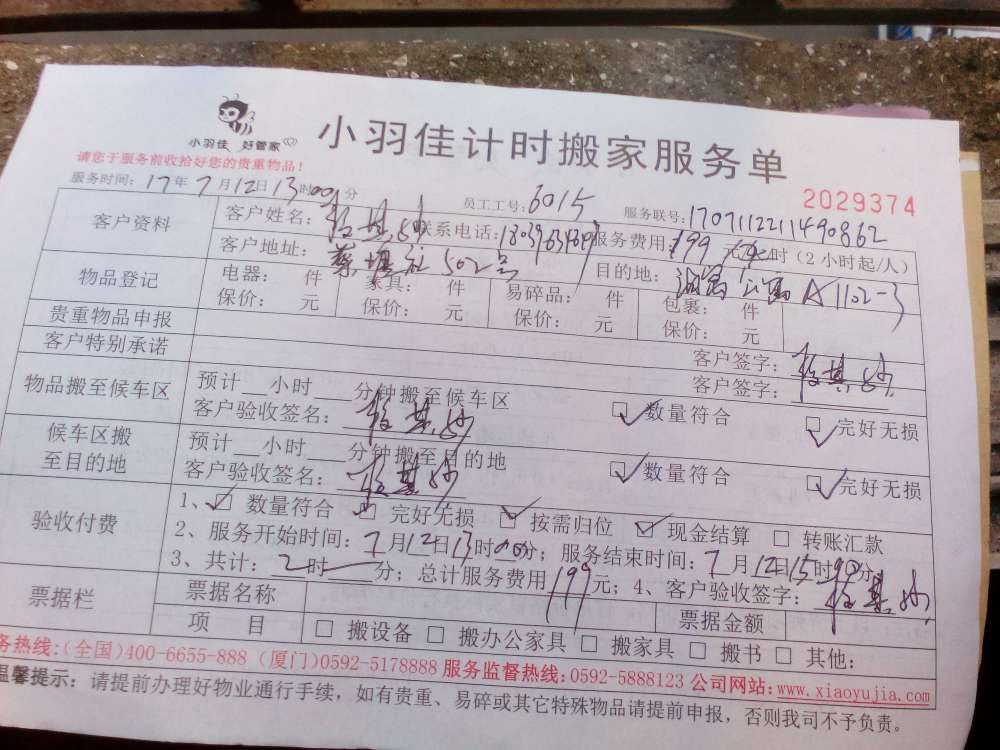 小羽佳 好管家
小羽佳计时搬家服务单
请您于服务前收拾好您的贵重物品！
2029374
服务时间：17年7月12日13时00分 员工工号：6015 服务联号：1707112211490862
客户资料 客户姓名： 联系电话： 服务费用：199 元/ 时（2小时起/人）
客户地址：蔡塘社502号 目的地： 公寓A1102-3
物品登记 电器： 件 家具： 件 易碎品： 件 包裹： 件
保价： 元 保价： 元 保价： 元 保价： 元
贵重物品申报 客户签字：
客户特别承诺 客户签字：
物品搬至候车区 预计 小时 分钟搬至候车区
客户验收签名： 数量符合 完好无损
候车区搬至目的地 预计 小时 分钟搬至目的地
客户验收签名： 数量符合 完好无损
验收付费 1、 数量符合 完好无损 按需归位 现金结算 转账汇款
2、服务开始时间：7月12日13时00分；服务结束时间：7月12日15时00分；
3、共计：2时 分；总计服务费用199元；4、客户验收签字：
票据栏 票据名称 票据金额
项 目 搬设备 搬办公家具 搬家具 搬书 其他：
务热线：(全国)400-6655-888 (厦门)0592-5178888 服务监督热线：0592-5888123 公司网站：www.xiaoyujia.com
温馨提示：请提前办理好物业通行手续，如有贵重、易碎或其它特殊物品请提前申报，否则我司不予负责。